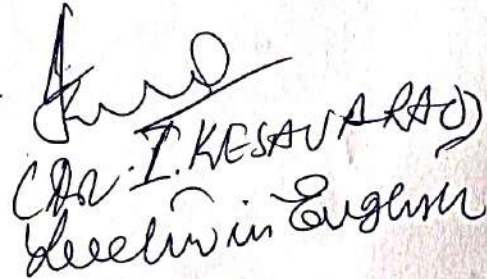 (Dr. I. KESAVARAO)
Lecturer in English